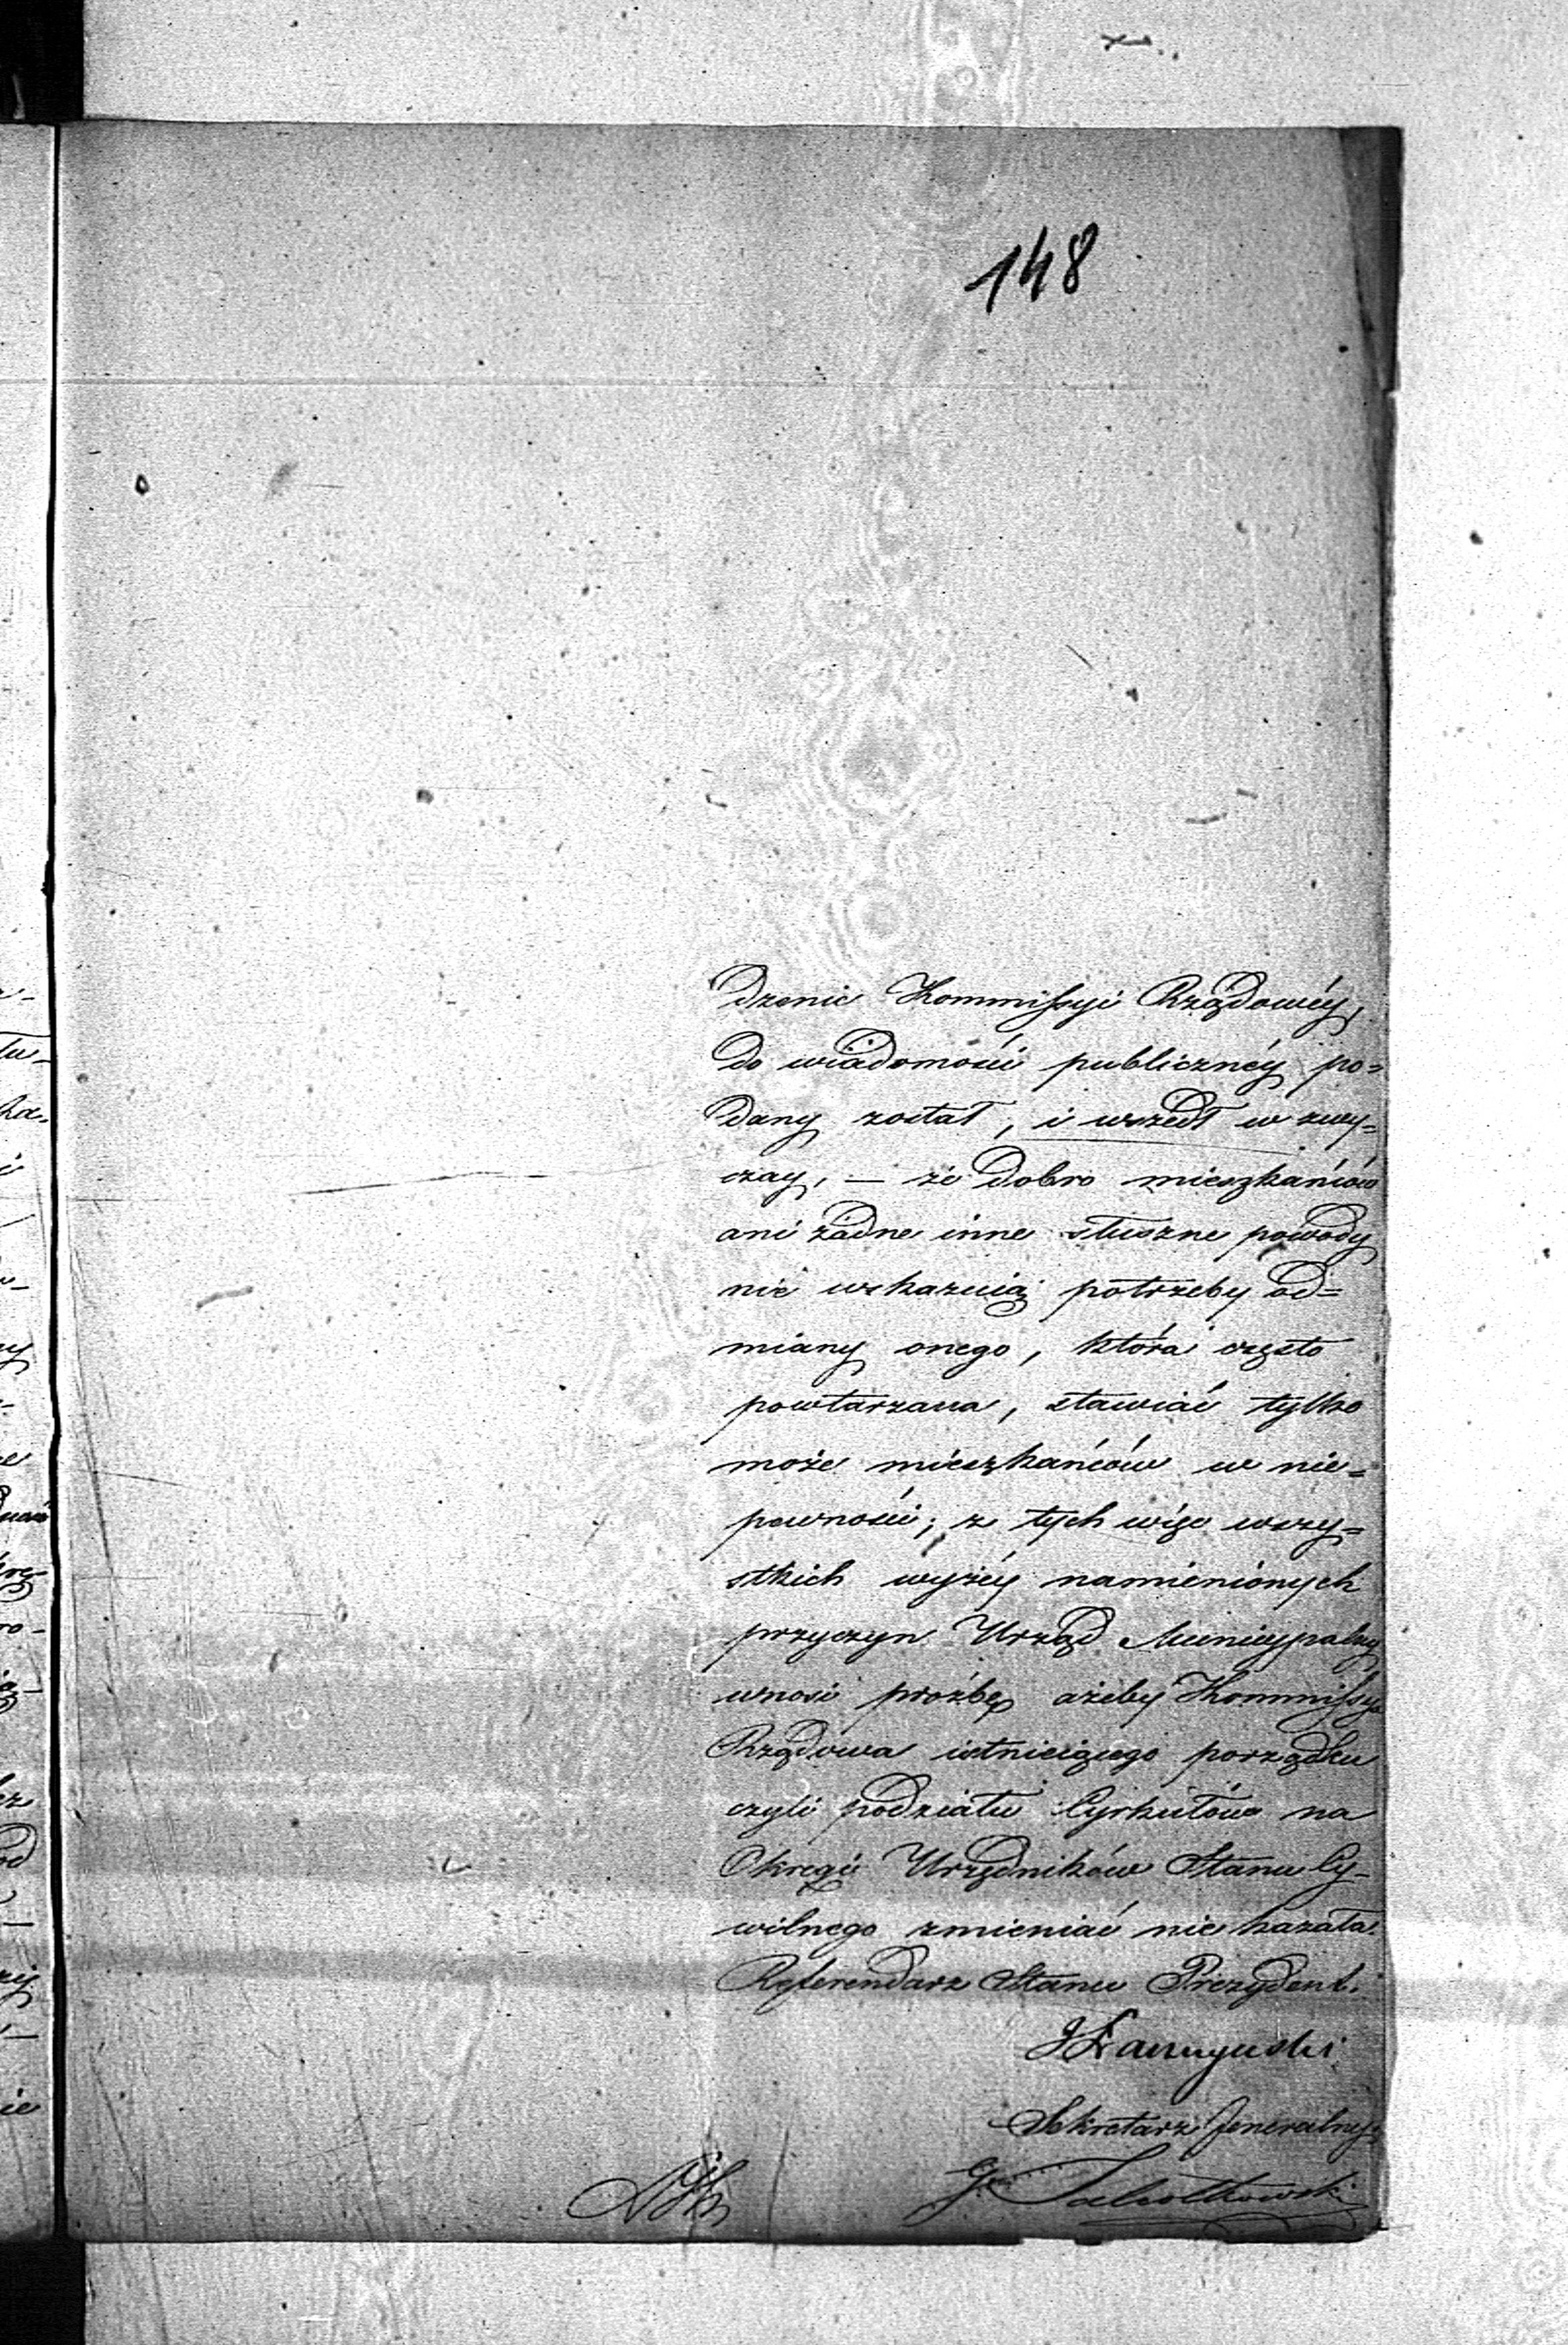 148
dzenie Kommissyi Rządowéy,
do wiadomości publicznéy po=
dany został, i wszedł w zwy=
czay, — że dobro mieszkańców
ani żadne inne słuszne powody
nie wskazuią potrzeby od=
miany onego, która często
powtarzana, stawiać tylko
może mieszkańców w nie=
pewności; z tych więc wszy=
stkich wyżéy namienionych
przyczyn Urząd Municypalny
wnosi prożbę ażeby Kommissya
Rządowa istnieiącego porządku
czyli podziału Cyrkułów na
Okręgi Urzędników Stanu Cy-
wilnego zmieniać nie kazała.
Referendarz Stanu Prezydent.
Sekretarz Jeneralny